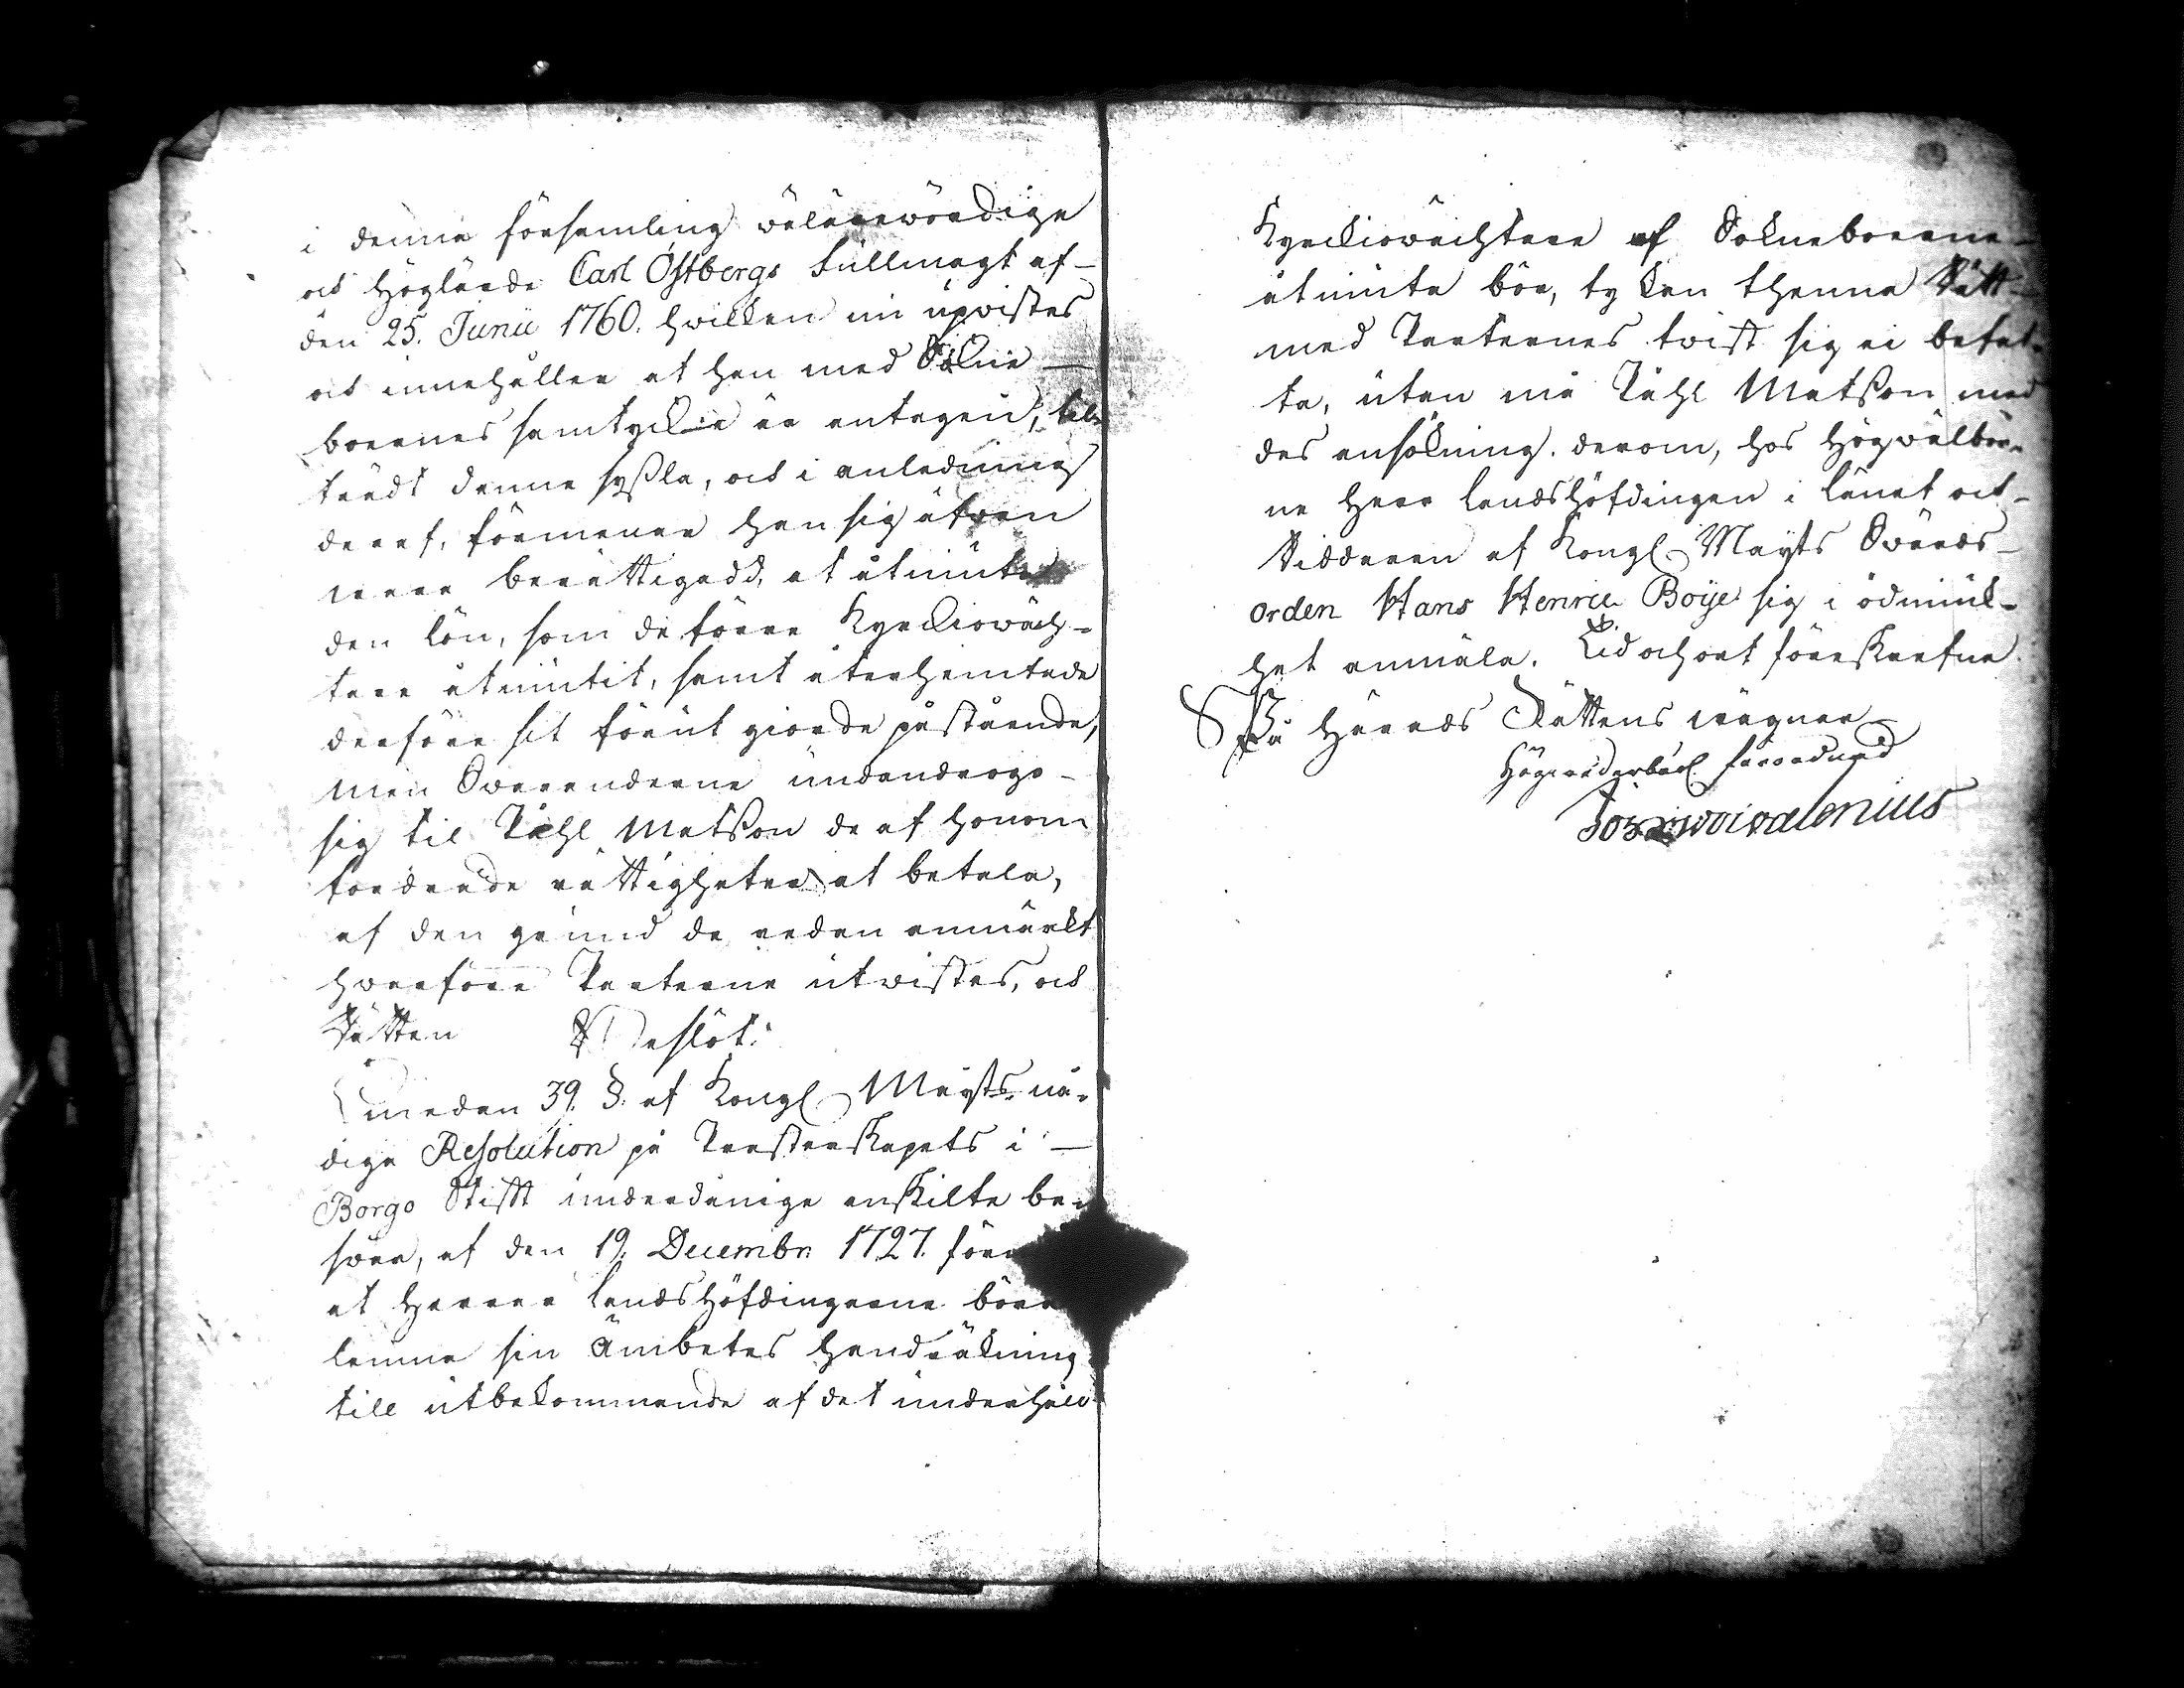 i denna församling wälärewördige
och Höglärde Carl Östbergs fullmagt af
den 25. Junii 1760. hwilken nu upwistes
och innehåller at han med Sokne
boernes samtyckie är antagen, til
trädt denna syßla, och i anledning
deraf, förmener han sig äfwen
wara berättigadd, at åtniuta
den lön, som de förre Kyrckiowäch-
tare åtniutit, samt återhemtade
derföre sit förut giorde påstående,
men Swaranderne undandrogo
sig til Påhl Matßon de af honom
fordrade rättigheter at betala,
af den grund de redan anmärckt
hwarföre Parterne utwistes, och
Rätten Beslöt:
Emedan 39. §. af Kongl. Mayts nå-
dige Resolution på Presterskapets i
Borgo Stift underdånige enskilte be-
swär, af den 19. Decembr. 1727. för
at Herrar Landshöfdingarne böra
lemna sin Ämbetes handräckning
till utbekommande af det underhåld
Kyrckiowächtare af Sokneboerne
åtniuta bör, ty kan thenna Rätt
med Parternes twist sig ei befat-
ta, utan må Påhl Matßon med
des ansökning derom, hos Högwälbor-
ne Herr Landshöfdingen i länet och
Riddaren af Kongl. Mayts Swärds-
orden Hans Henric Boije sig i ödmiuk-
het anmäla. Tid och ort föreskrefne.
På Härads Rättens wägnar